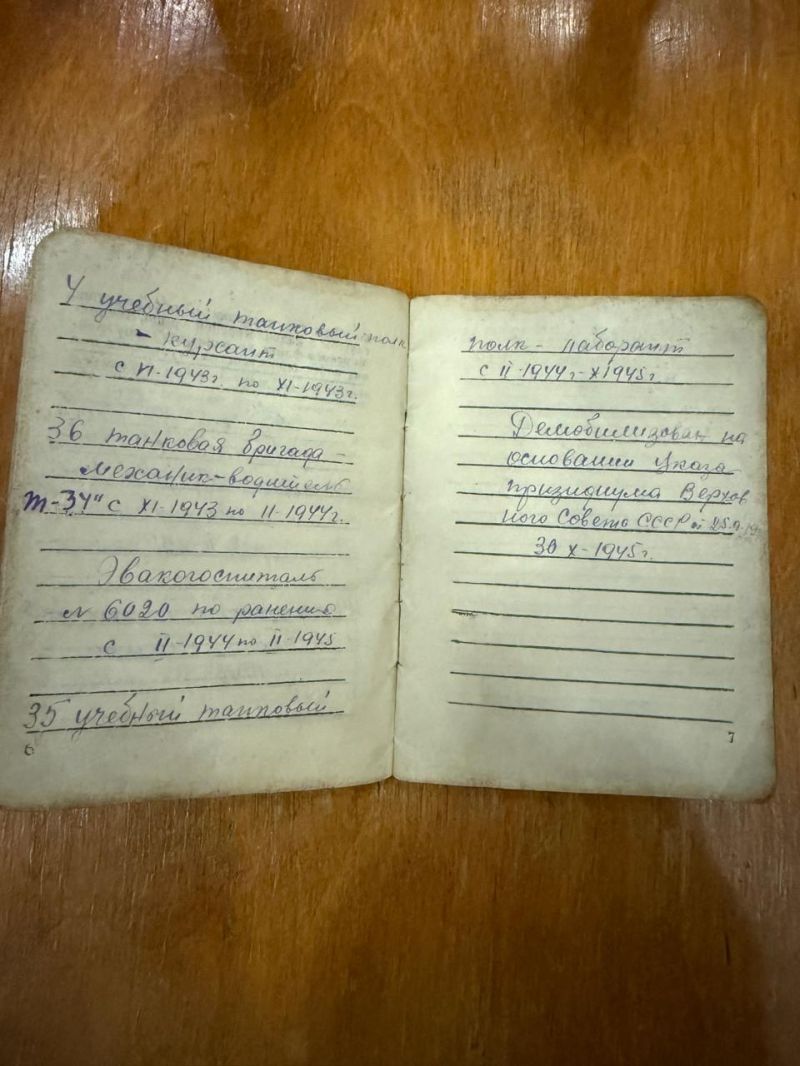 4 учебный танковый полк
- курсант
с VI-1943г. по XI-1943г.
36 танковая бригада -
механик-водитель
Т-34" с XI-1943 по II-1944г.
Эвакогоспиталь
№ 6020 по ранению
с II-1944 по II-1945
35 учебный танковый
6
полк - лаборант
с II-1944г-X1945г.
Демобилизован на
основании Указа
призидиума Верхов
ного Совета СССР от 25.9.19
30 X-1945г.
7